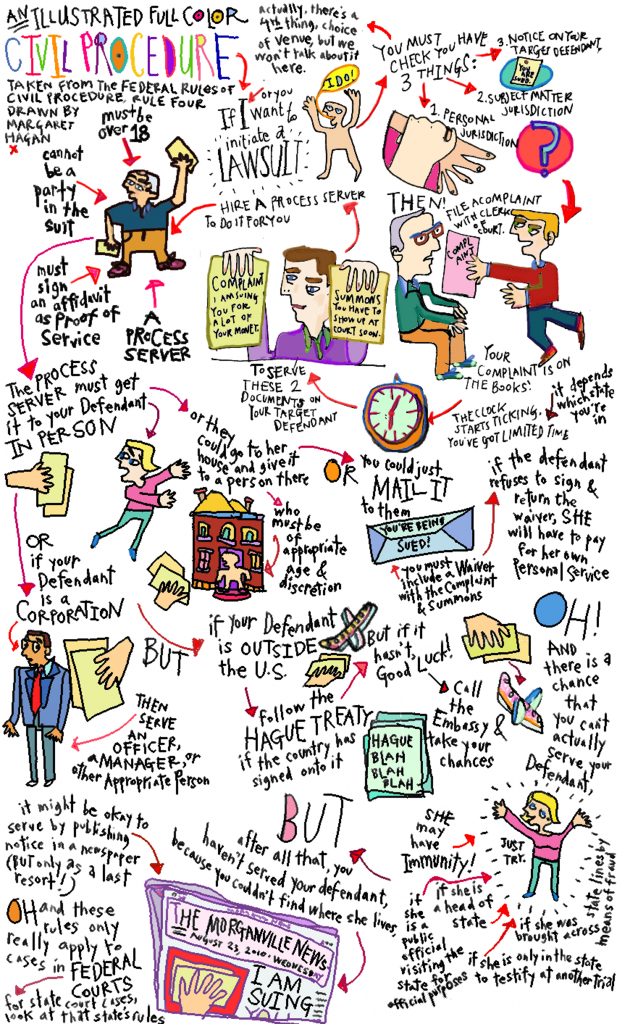 AN ILLUSTRATED FULL COLOR
CIVIL PROCEDURE
TAKEN FROM THE FEDERAL RULES OF
CIVIL PROCEDURE, RULE FOUR
DRAWN BY
MARGARET
HAGAN
actually, there's a
4th thing, choice
of venue, but we
won't talk about it
here.
If I
or you
want to
initiate a
LAWSUIT
I DO!
YOU MUST
CHECK YOU HAVE
3 THINGS:
3. NOTICE ON YOUR
TARGET DEFENDANT.
YOU ARE
SUED.
2. SUBJECT MATTER
JURISDICTION
1. PERSONAL
JURISDICTION
?
must be
over 18
cannot
be a
party
in the
suit
must
sign
an affidavit
as Proof of
Service
A
PROCESS
SERVER
HIRE A PROCESS SERVER
TO DO IT FOR YOU
THEN!
FILE A COMPLAINT
WITH CLERK
of
COURT.
COMPL
AINT
COMPLAIN
I AM SUING
YOU FOR
A LOT OF
YOUR MONEY.
SUMMONS
YOU HAVE TO
SHOW UP AT
COURT SOON.
YOUR
COMPLAINT IS ON
THE BOOKS!
TO SERVE
THESE 2
DOCUMENTS ON
YOUR TARGET
DEFENDANT
THE CLOCK
STARTS TICKING.
YOU'VE GOT LIMITED TIME
it depends
which state
you're
in
The PROCESS
SERVER must get
it to your Defendant
IN PERSON
or they
could go to her
house and give it
to a person there
who
must be
of appropriate
age &
discretion
OR
you could just
MAIL IT
to them
YOU'RE BEING
SUED!
you must
include a Waiver
with the Complaint
& Summons
if the defendant
refuses to sign &
return the
waiver, SHE
will have to pay
for her own
Personal Service
OR
if your
Defendant
is a
CORPORATION
THEN
SERVE
AN
OFFICER,
a MANAGER, or
other Appropriate Person
BUT
if YOUR Defendant
is OUTSIDE
the U.S.
follow the
HAGUE TREATY
if the country has
signed onto it
But if it
hasn't,
Good Luck!
Call
the
Embassy &
take your
chances
HAGUE
BLAH
BLAH
BLAH
OH!
AND
there is a
chance
that
you can't
actually
serve your
Defendant.
JUST
TRY.
SHE
may
have
Immunity!
if she is
a head of
state
if
she
is a
public
official
visiting the
state for
official purposes
if she is only in the state
to testify at another trial
if she was
brought across
state lines by
means of fraud
BUT
after all that, you
haven't served your defendant,
because you couldn't find where she lives,
it might be okay to
serve by publishing
notice in a newspaper
(but only as a last
resort!)
THE MORGANVILLE NEWS
AUGUST 25, 2010. WEDNESDAY
I AM
SUING
YO
OH and these
rules only
really apply to
cases in FEDERAL
COURTS
for state court cases,
look at that state's rules